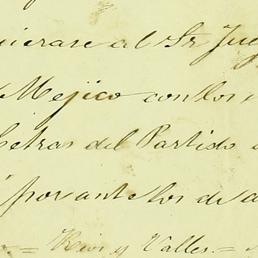 quierase al Sr. Jue
Mejico con los
Letras del Partido
por ante los de a
= Rios y Valles. =